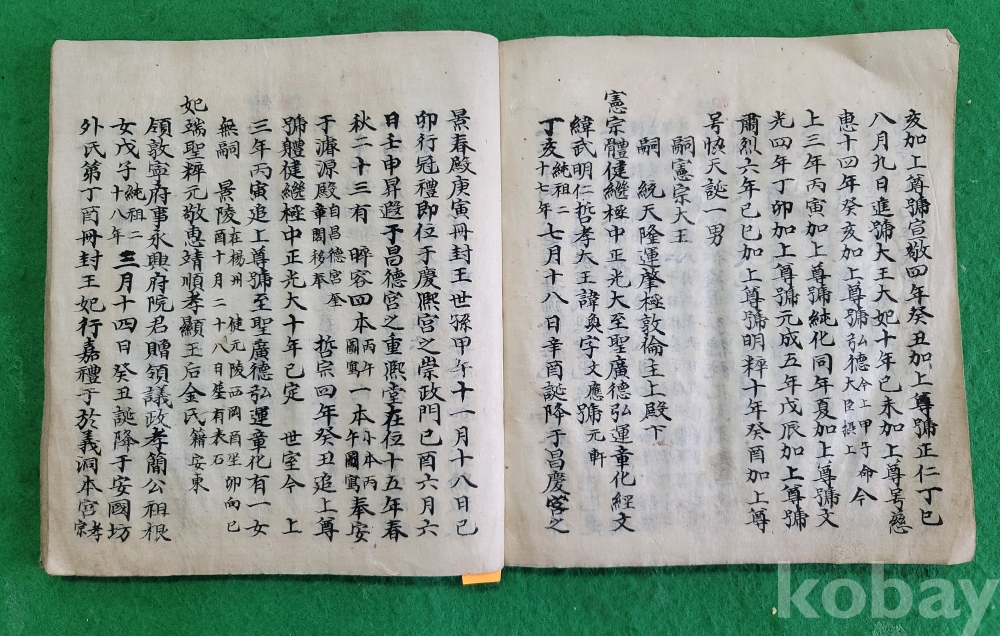 亥加上尊號宣敬四年癸丑加上尊號正仁丁巳
八月九日進號大王大妃十年己未加上尊号慈
惠十四年癸亥加上尊號弘德今上甲子命今大臣攝上
上三年丙寅加上尊號純化同年夏加上尊號文
光四年丁卯加上尊號元成五年戊辰加上尊號
肅烈六年己巳加上尊號明粹十年癸酉加上尊
号恊天誕一男
嗣憲宗大王
嗣 統天隆運肇極敦倫主上殿下
憲宗體健繼極中正光大至聖廣德弘運章化經文
緯武明仁哲孝大王諱奐字文應號元軒
丁亥純祖二十七年七月十八日辛酉誕降于昌慶宮之
景春殿庚寅冊封王世孫甲午十一月十八日己
卯行冠禮即位于慶熙宮之崇政門己酉六月六
日壬申昇遐于昌德宮之重熙堂在位十五年春
秋二十三有 睟容四本丙午圖寫一本小本丙午圖寫奉安
于濬源殿自昌德宮奎章閣移奉 哲宗四年癸丑追上尊
號體健繼極中正光大十年已定 世室今 上
三年丙寅追上尊號至聖廣德弘運章化有一女
無嗣 景陵在楊州健元陵西岡酉坐卯向己酉十月二十八日葬有表石
妃端聖粹元敬惠靖順孝顯王后金氏籍安東
領敦寧府事永興府院君贈領議政孝簡公祖根
女戊子純祖二十八年三月十四日癸丑誕降于安國坊
外氏第丁酉冊封王妃行嘉禮于於義洞本宮孝宗
kobay